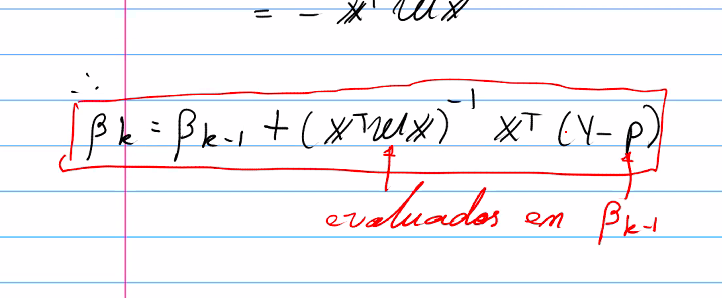 = - XᵀWX
∴
βk = βk-1 + (XᵀWX)⁻¹ Xᵀ (Y-p)
evaluados en βk-1